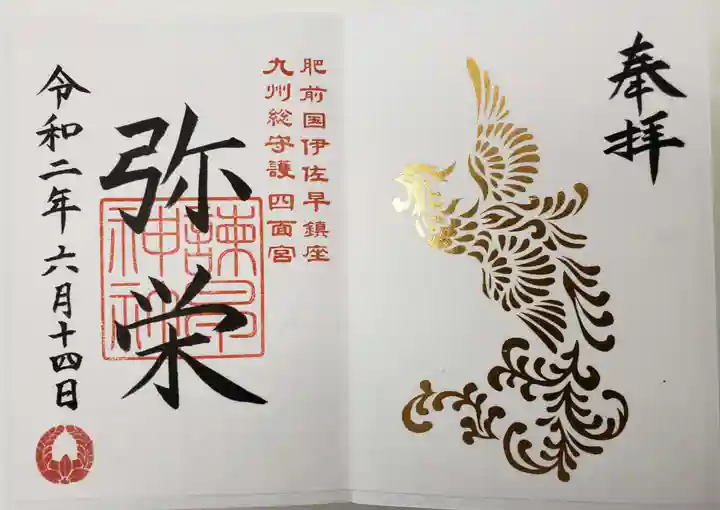 奉拝
肥前国伊佐早鎮座
九州総守護 四面宮
弥栄
諫早
神社
令和二年六月十四日